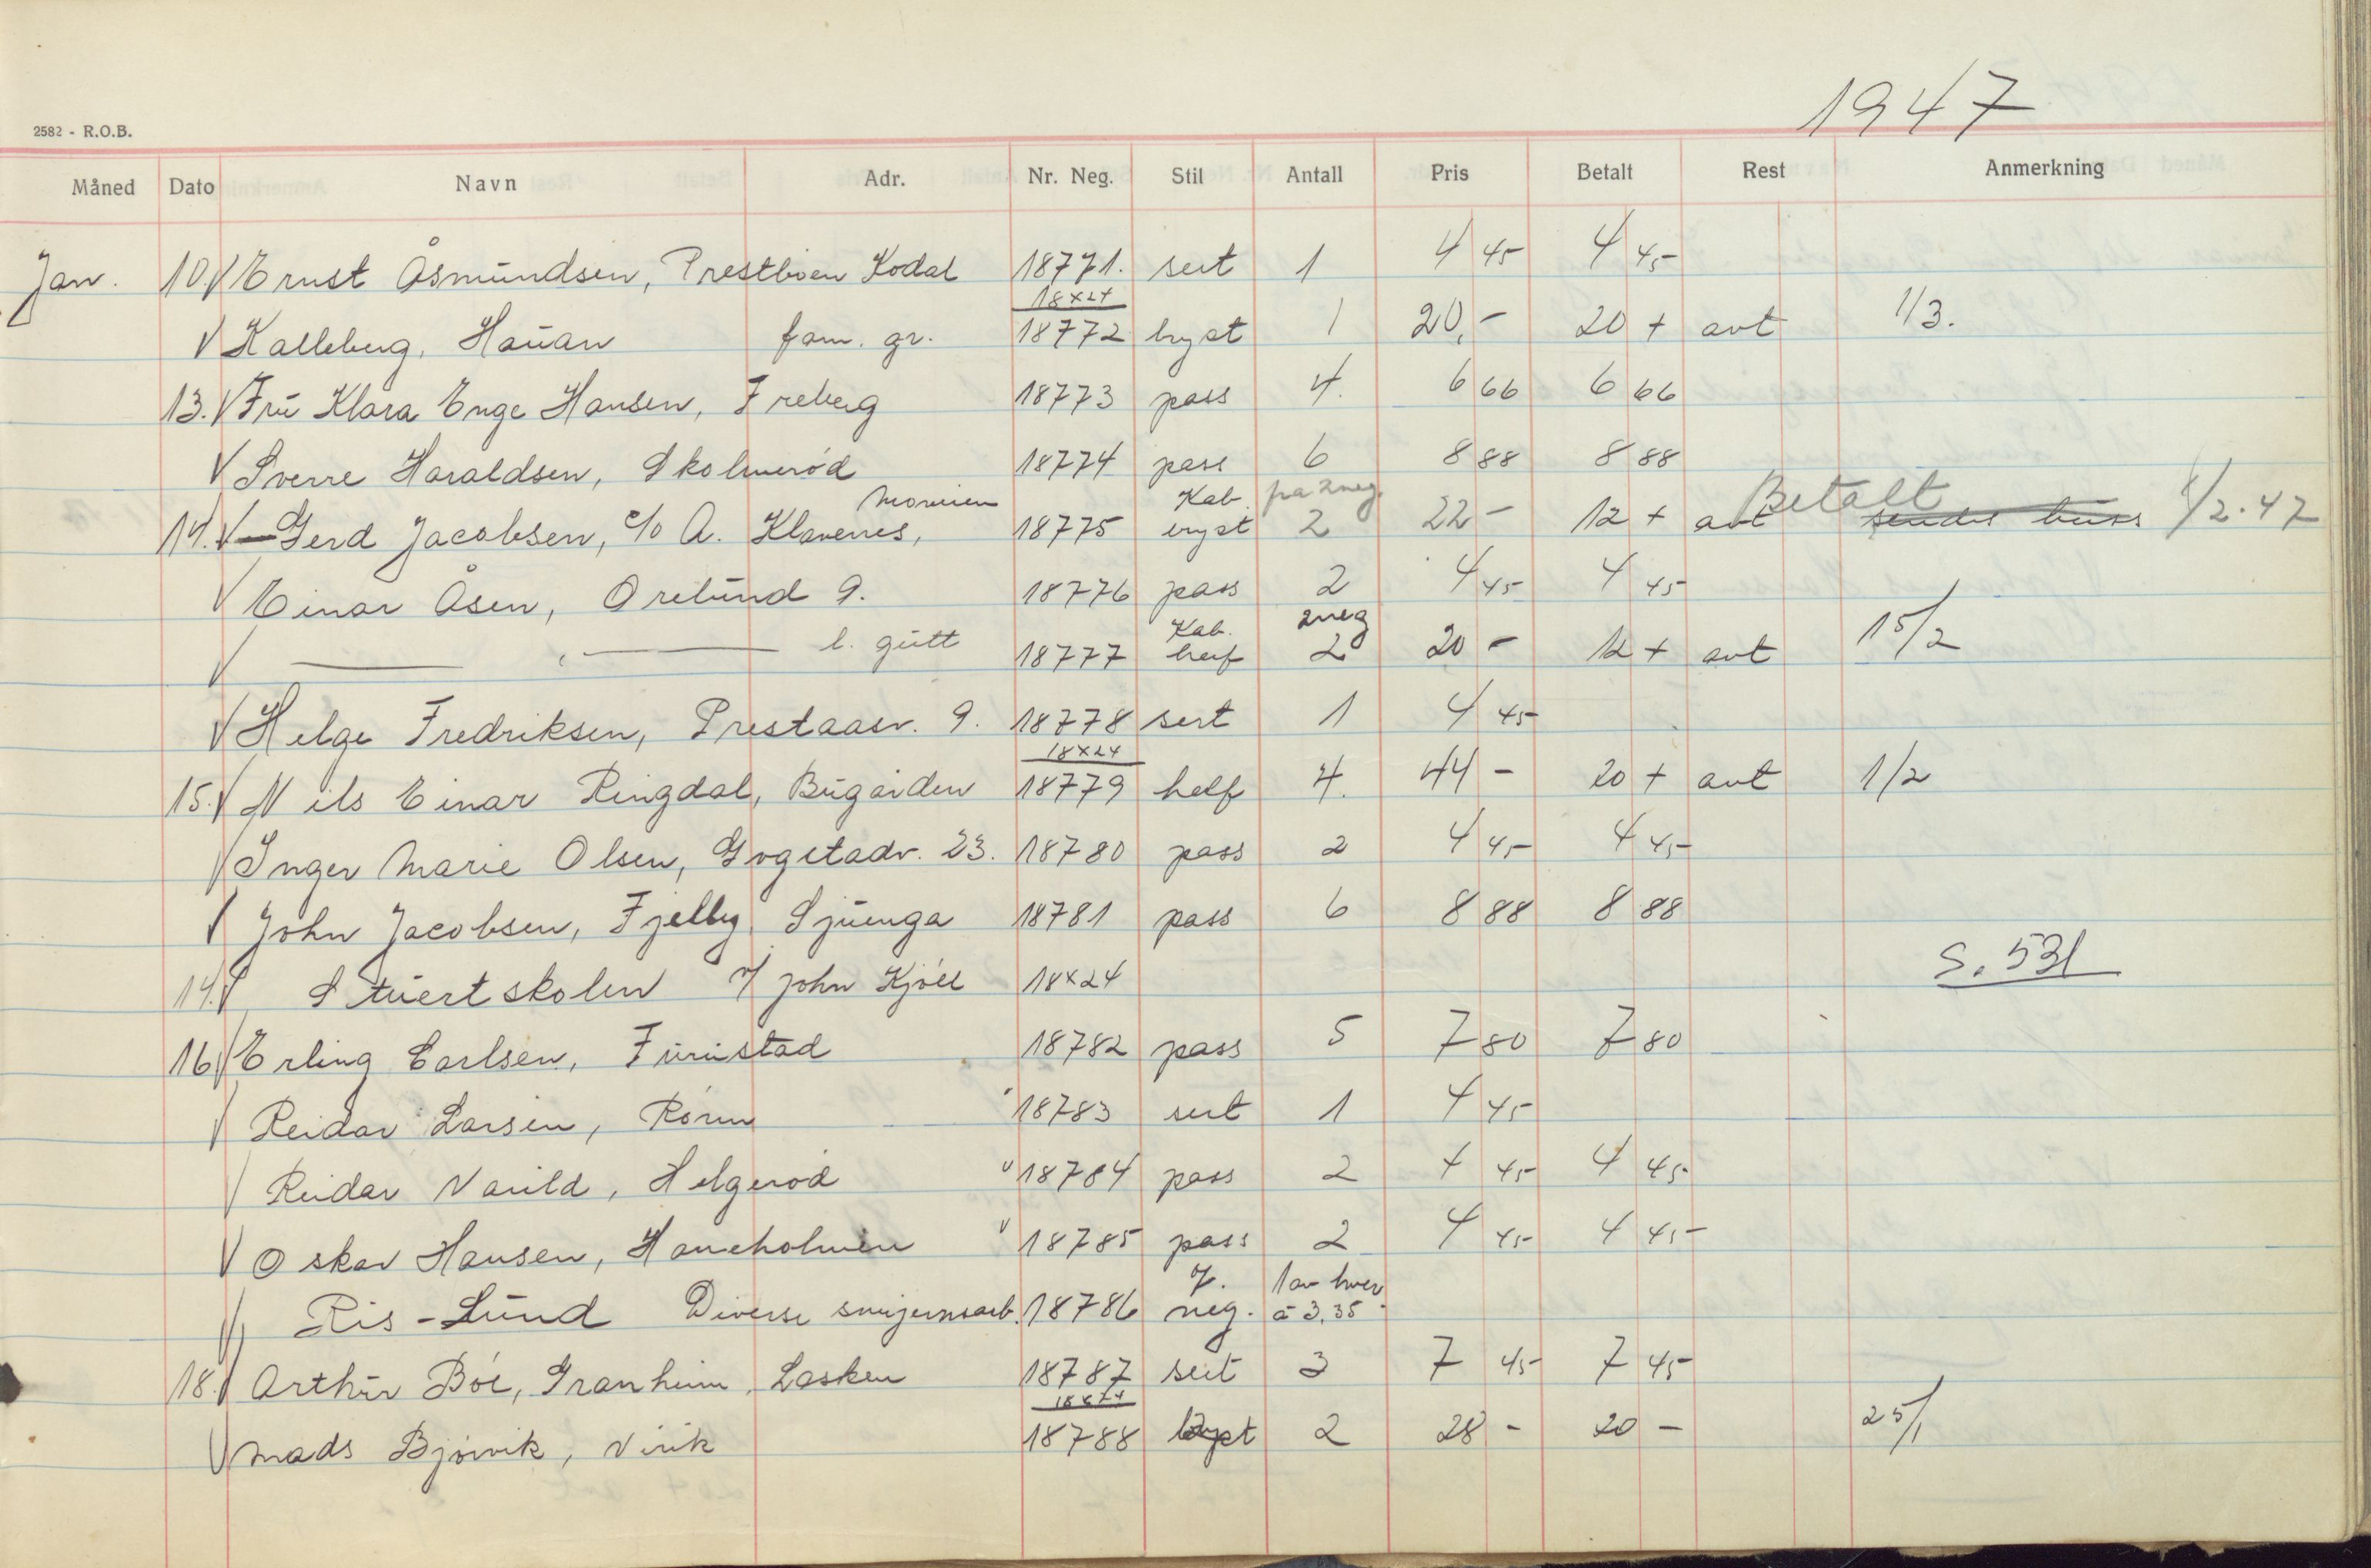 1947
2582 - R.O.B.
Måned Dato Navn Adr. Nr. Neg. Stil Antall Pris Betalt Rest Anmerkning
Jan. 10. Ernst Åsmundsen, Prestbøen Kodal 18771. sert 1 4 45 4 45
18x24
Kalleberg, Hauan fam. gr. 18772 bryst 1 20,- 20 + avt 1/3.
13. Fru Klara Enge Hansen, Freberg 18773 pass 4. 6 66 6 66
Sverre Haraldsen, Skolmerød 18774 pass 6 8 88 8 88
Kab. på 2 neg. Betalt
14. Gerd Jacobsen, c/o A. Klavenes, 18775 bryst 2 22 - 12 + avt sendes buss 1/2.47
Einar Åsen, Orelund 9. 18776 pass 2 4 45 4 45
Kab. 2 neg
l. gutt 18777 helf 2 20 - 12 + avt 15/2
Helge Fredriksen, Prestaasv. 9. 18778 sert 1 4 45
18x24
15. Nils Einar Ringdal, Bugården 18779 helf 4. 44 - 20 + avt 1/2
Inger Marie Olsen, Gogstadv. 23. 18780 pass 2 4 45 4 45
John Jacobsen, Fjelly, Sjuenga 18781 pass 6 8 88 8 88
14. Stuertskolen v/ John Kjøll 18x24 S. 531
16. Erling Carlsen, Furustad 18782 pass 5 7 80 7 80
Reidar Larsen, 18783 sert 1 4 45
Reidar Narild, Helgerød 18784 pass 2 4 45 4 45
Oskar Hansen, Haneholmen 18785 pass 2 4 45 4 45
7. 1 av hver
Ris - Lund Diverse smijernsarb. 18786 neg. á 3,35
18. Arthur Bøe, Granheim, Lasken 18787 sert 3 7 45 7 45
18x24
Mads Bjørvik, Virik 18788 bryst 2 28 - 20 - 25/1